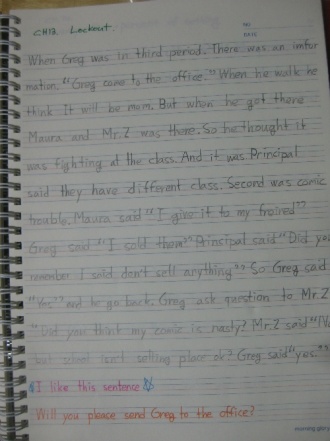 CH12. Lockout.
NO
DATE
When Greg was in third period. There was an infor
mation. "Greg come to the office." When he walk he
think It will be mom. But when he got there
Maura and Mr.Z was there. So he thought it
was fighting at the class. And it was Principal
said they have different class. Second was comic
trouble. Maura said "I give it to my froired"
Greg said "I sold them" Principal said "Did you
remember I said don't sell anything" So Greg said
"Yes" and to go back. Greg ask question to Mr.Z
"Did you think my comic is nasty? Mr.Z said "No
but school isn't selling place ok? Greg said "yes."
I like this sentence
Will you please send Greg to the office?
morning glory